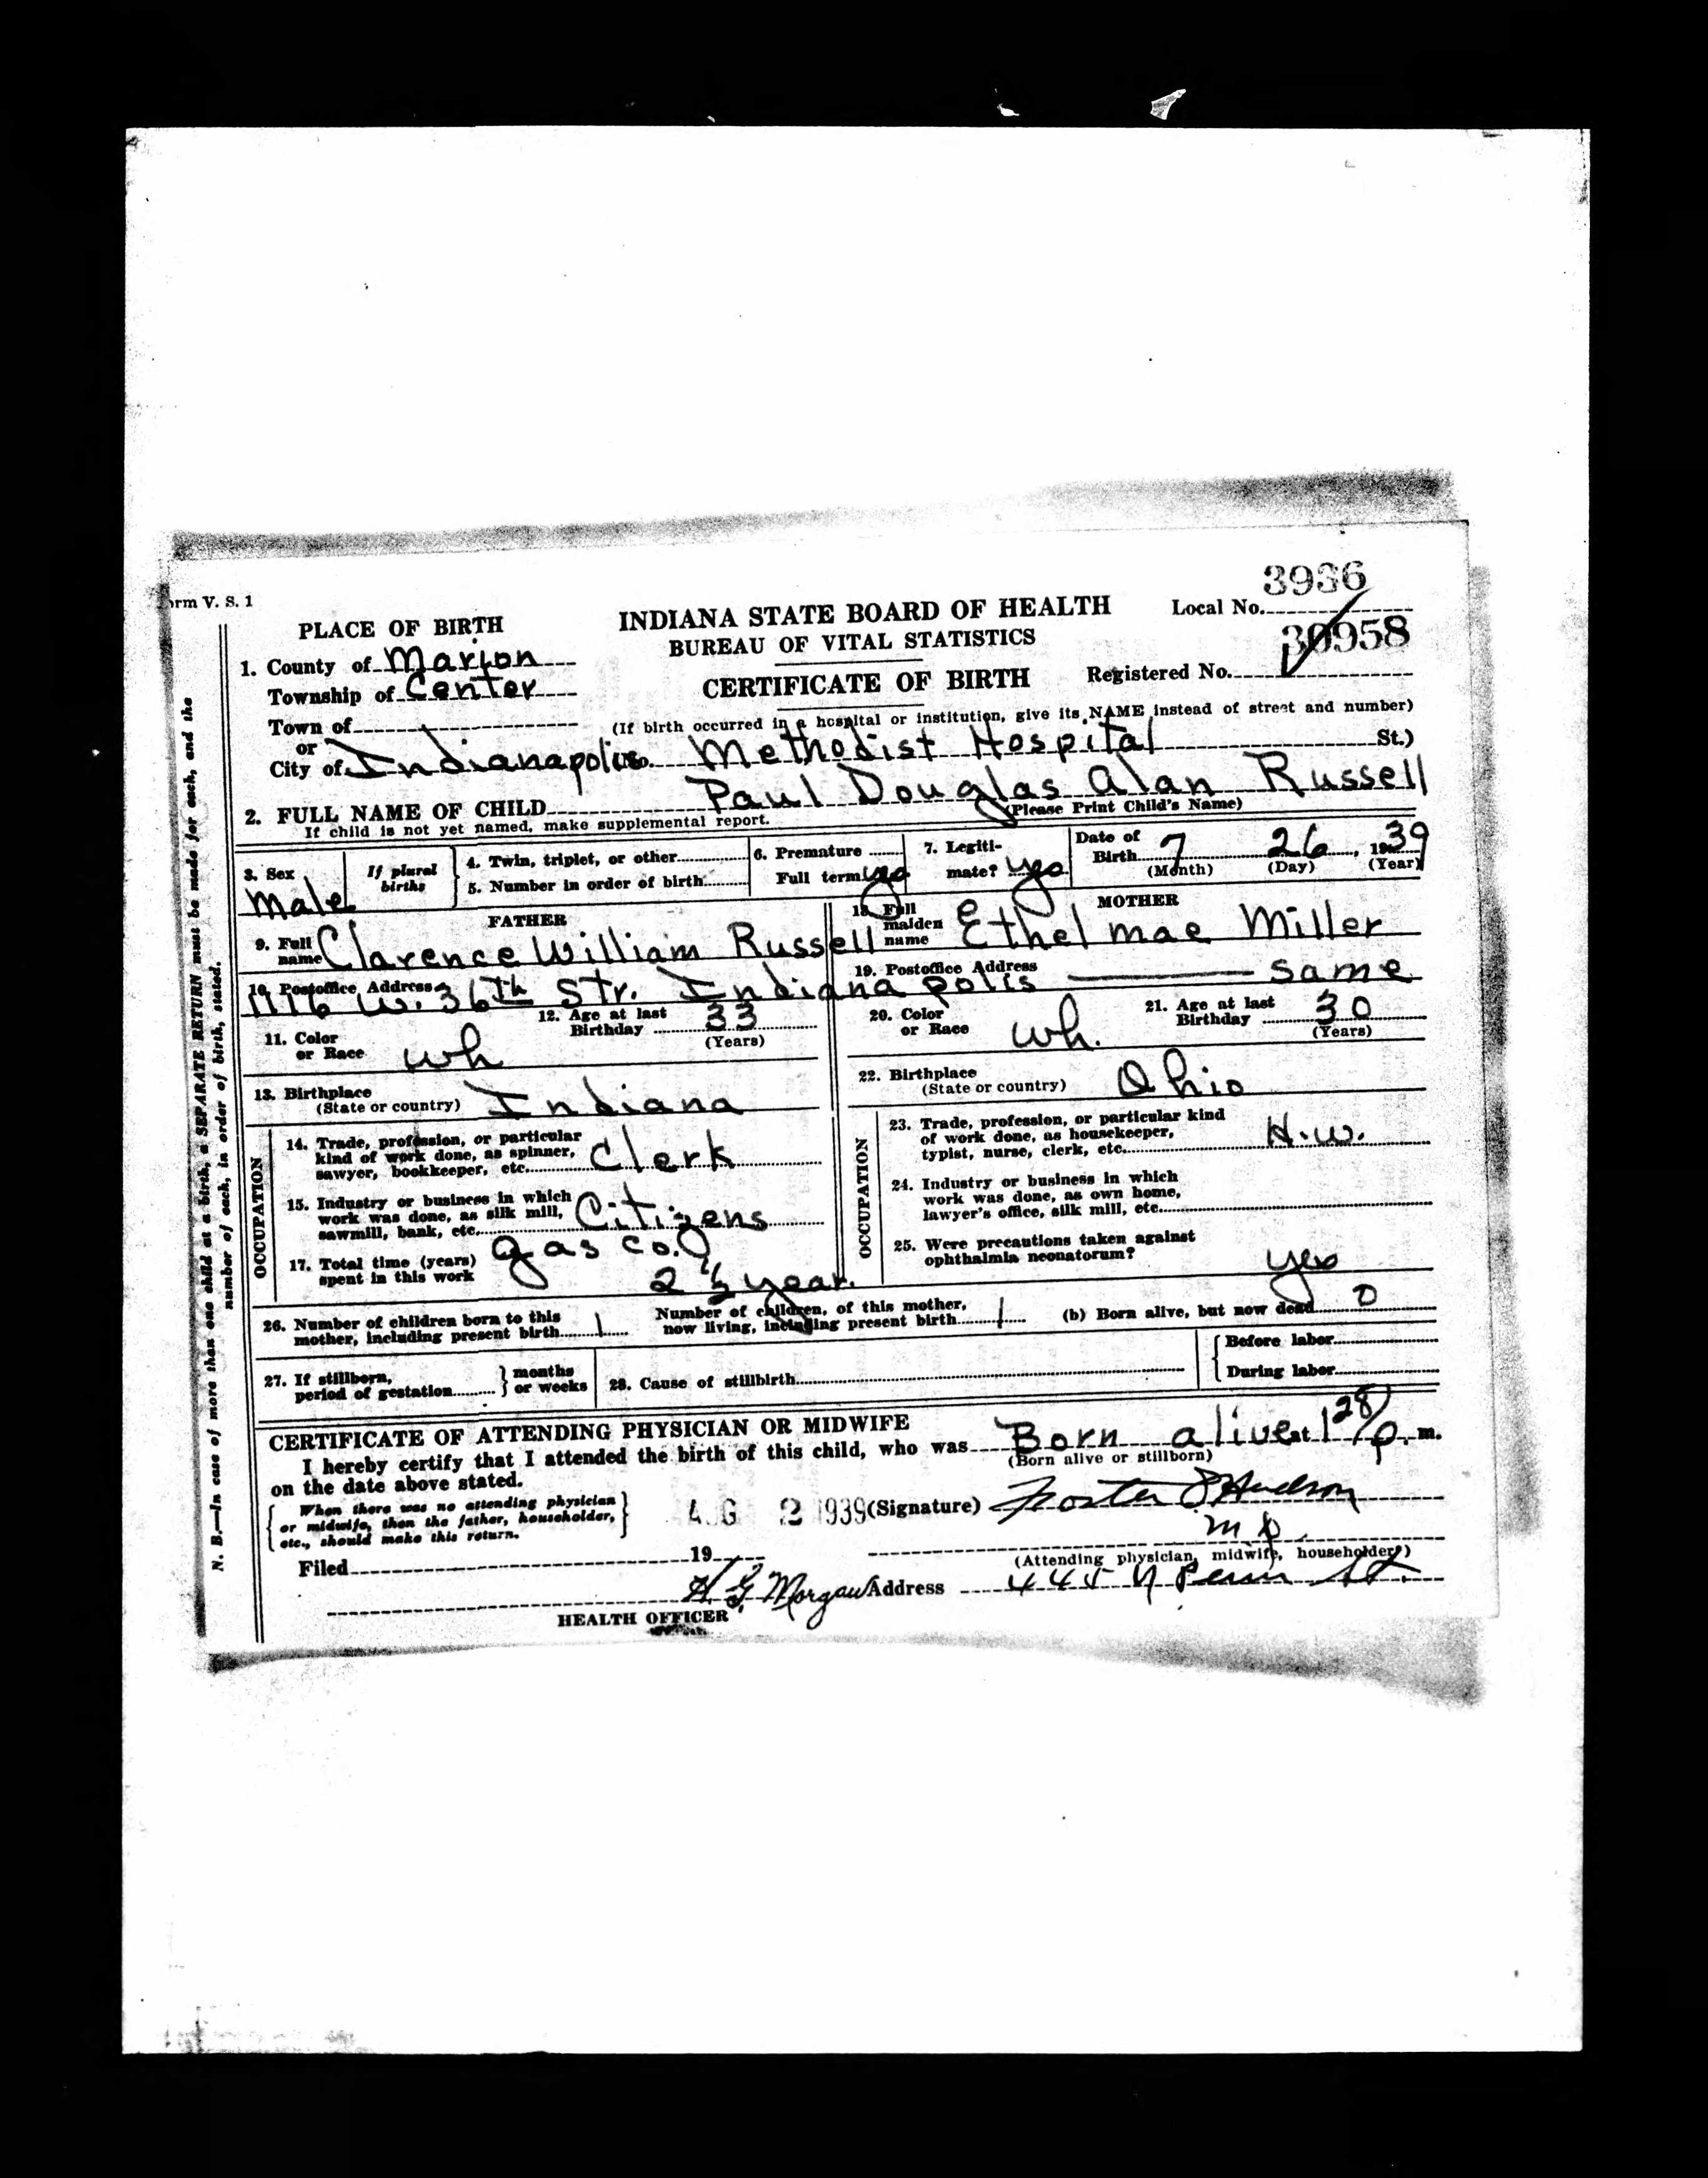 orm V. S. 1
INDIANA STATE BOARD OF HEALTH
BUREAU OF VITAL STATISTICS
CERTIFICATE OF BIRTH
Local No. 3936
Registered No. 30958
PLACE OF BIRTH
1. County of Marion
Township of Center
Town of
or
City of Indianapolis No. Methodist Hospital St.)
(If birth occurred in a hospital or institution, give its NAME instead of street and number)
2. FULL NAME OF CHILD Paul Douglas Alan Russell
(Please Print Child's Name)
If child is not yet named, make supplemental report.
3. Sex Male
If plural births
4. Twin, triplet, or other
5. Number in order of birth
6. Premature
Full term yes
7. Legitimate? yes
Date of Birth 7 26, 1939
(Month) (Day) (Year)
FATHER
9. Full name Clarence William Russell
10. Postoffice Address 1116 W. 36th Str. Indianapolis
11. Color or Race wh
12. Age at last Birthday 33 (Years)
13. Birthplace (State or country) Indiana
OCCUPATION
14. Trade, profession, or particular kind of work done, as spinner, sawyer, bookkeeper, etc. Clerk
15. Industry or business in which work was done, as silk mill, sawmill, bank, etc. Citizens gas co.
17. Total time (years) spent in this work 2 1/2 year.
MOTHER
18. Full maiden name Ethel Mae Miller
19. Postoffice Address same
20. Color or Race wh.
21. Age at last Birthday 30 (Years)
22. Birthplace (State or country) Ohio
OCCUPATION
23. Trade, profession, or particular kind of work done, as housekeeper, typist, nurse, clerk, etc. H.W.
24. Industry or business in which work was done, as own home, lawyer's office, silk mill, etc.
25. Were precautions taken against ophthalmia neonatorum? yes
26. Number of children born to this mother, including present birth 1
Number of children, of this mother, now living, including present birth 1
(b) Born alive, but now dead 0
27. If stillborn, period of gestation months or weeks
28. Cause of stillbirth
Before labor
During labor
CERTIFICATE OF ATTENDING PHYSICIAN OR MIDWIFE
I hereby certify that I attended the birth of this child, who was Born alive at 1 28/p. m.
(Born alive or stillborn)
on the date above stated.
When there was no attending physician
or midwife, then the father, householder,
etc., should make this return.
AUG 2 1939
(Signature) Foster J Hudson
M D
(Attending physician, midwife, householder)
Filed 19
H. G. Morgan
HEALTH OFFICER
Address 445 N Penn St.
N. B.—In case of more than one child at a birth, a SEPARATE RETURN must be made for each, and the
number of each, in order of birth, stated.